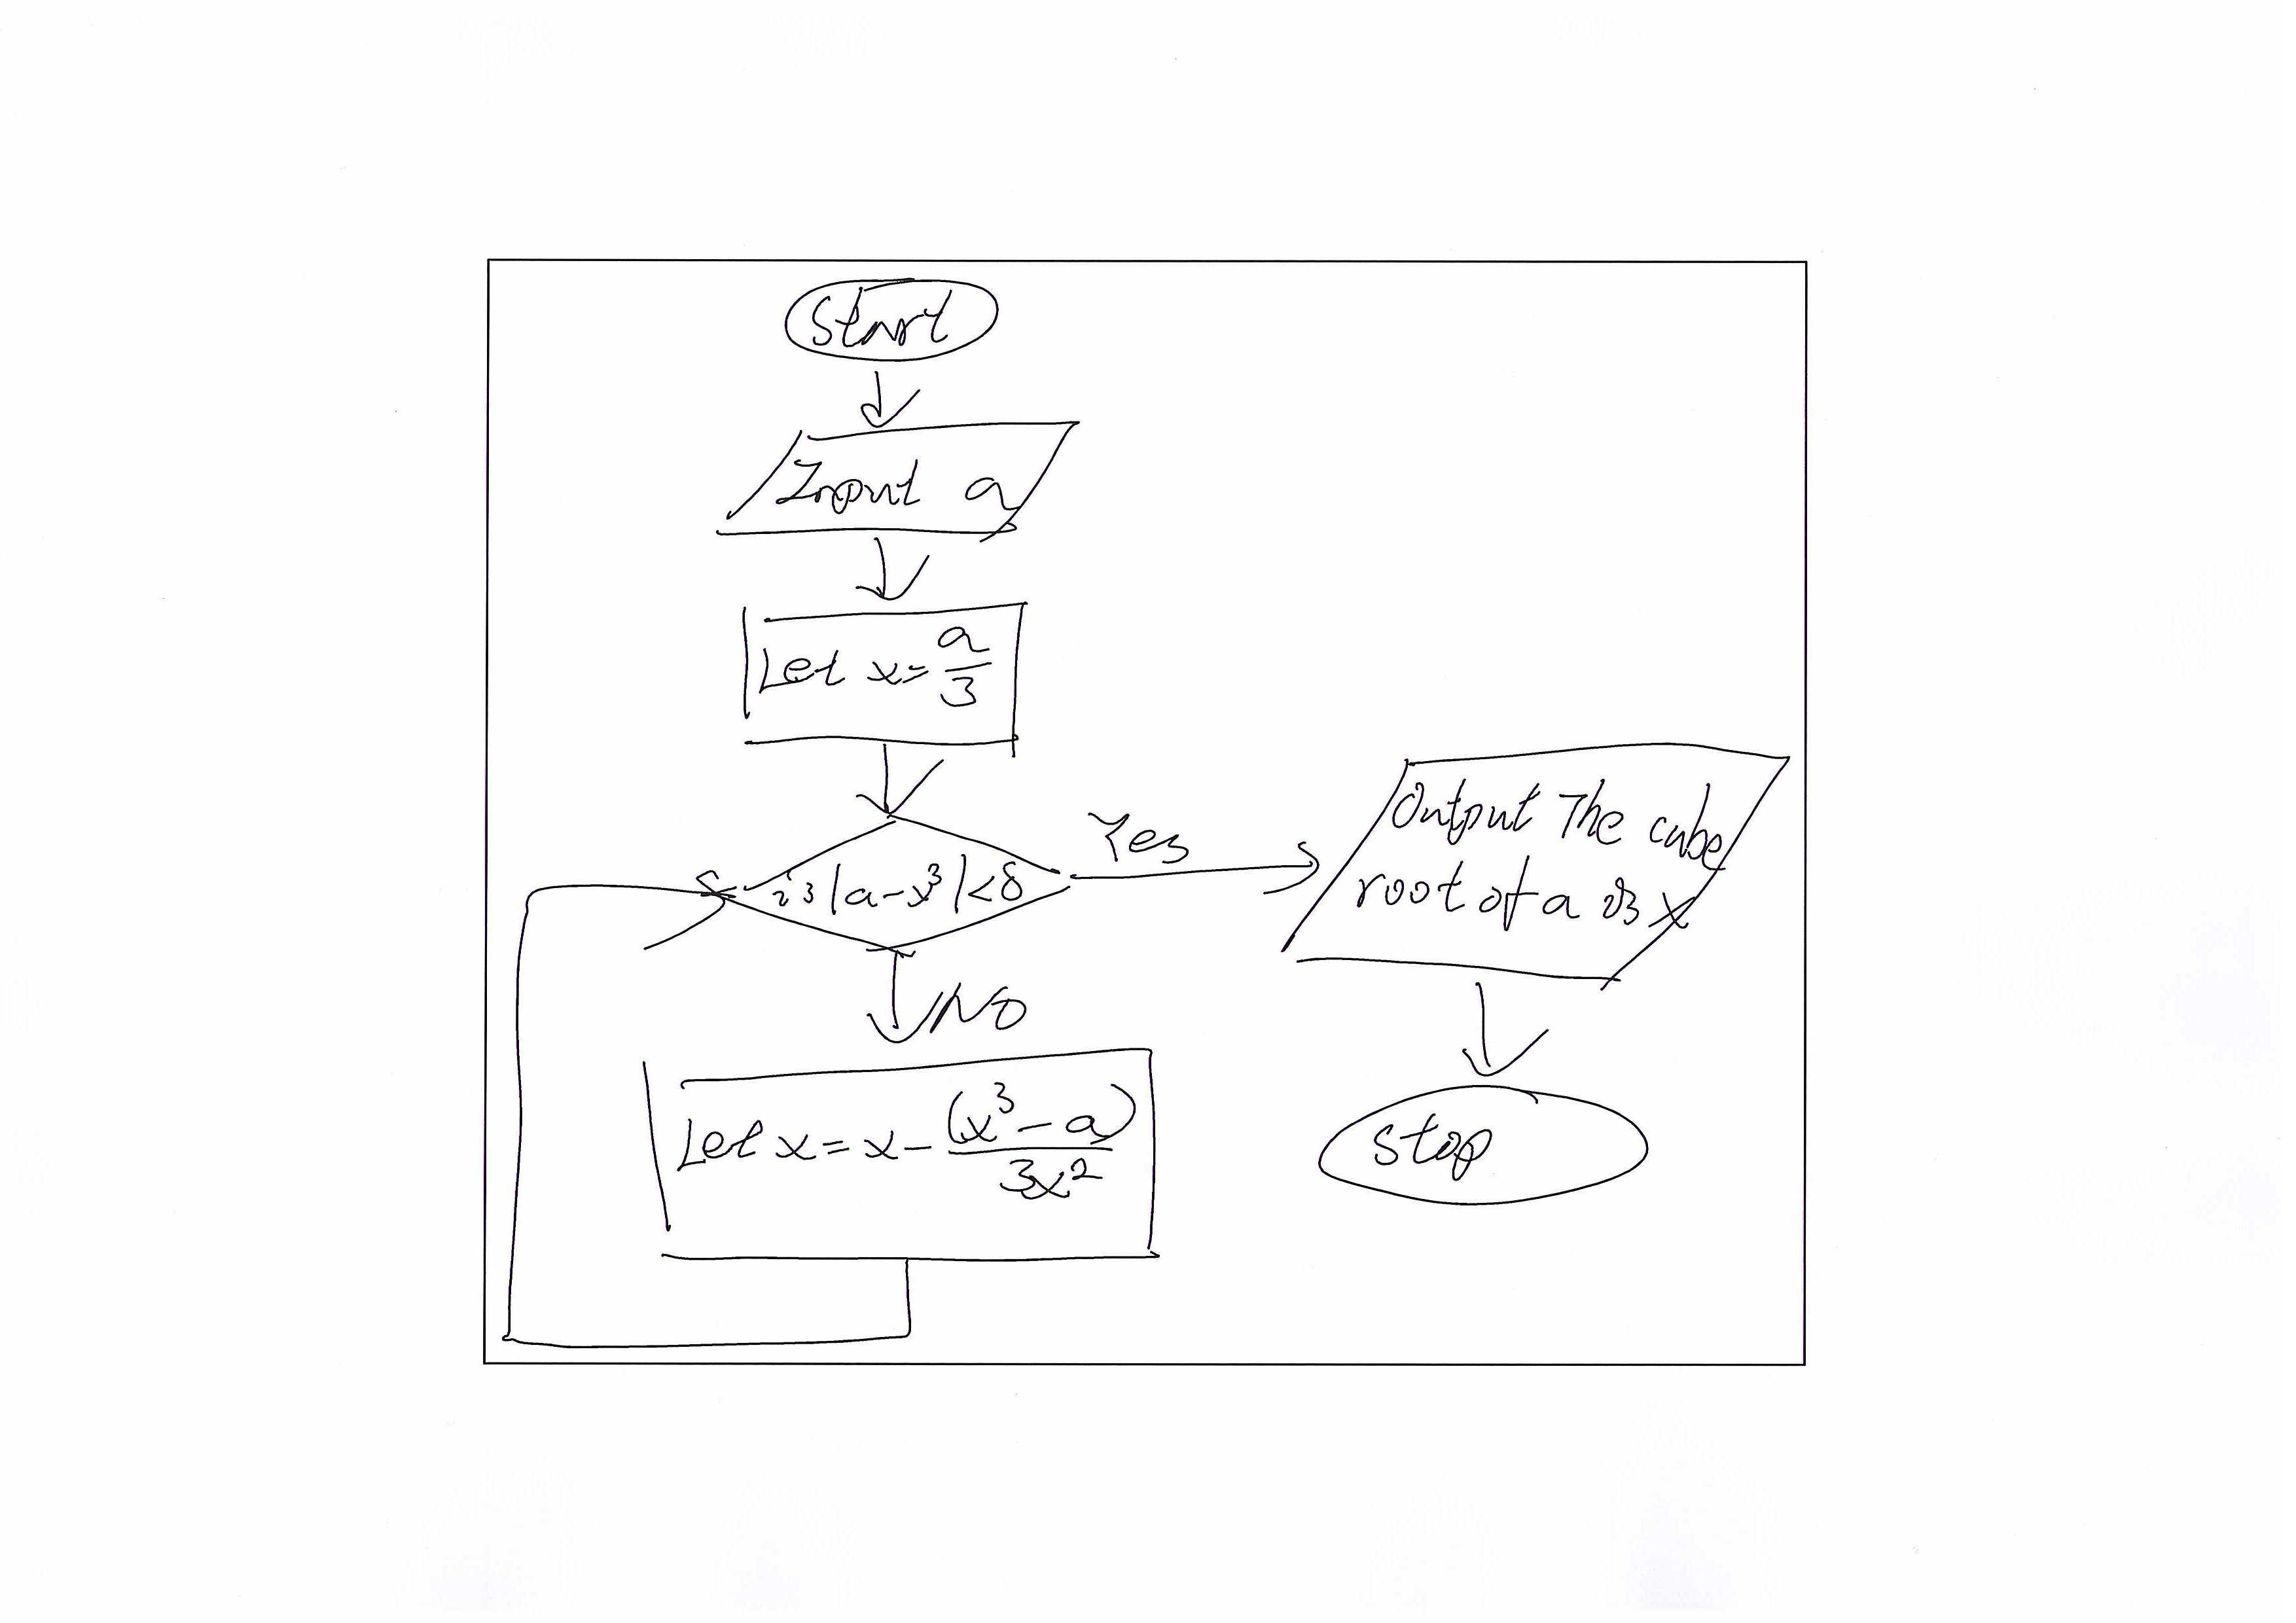 Start
Input a
Let x = a/3
is |a - x³| < δ
Yes
Output The cube
root of a is x
No
Let x = x - (x³ - a)/3x²
stop